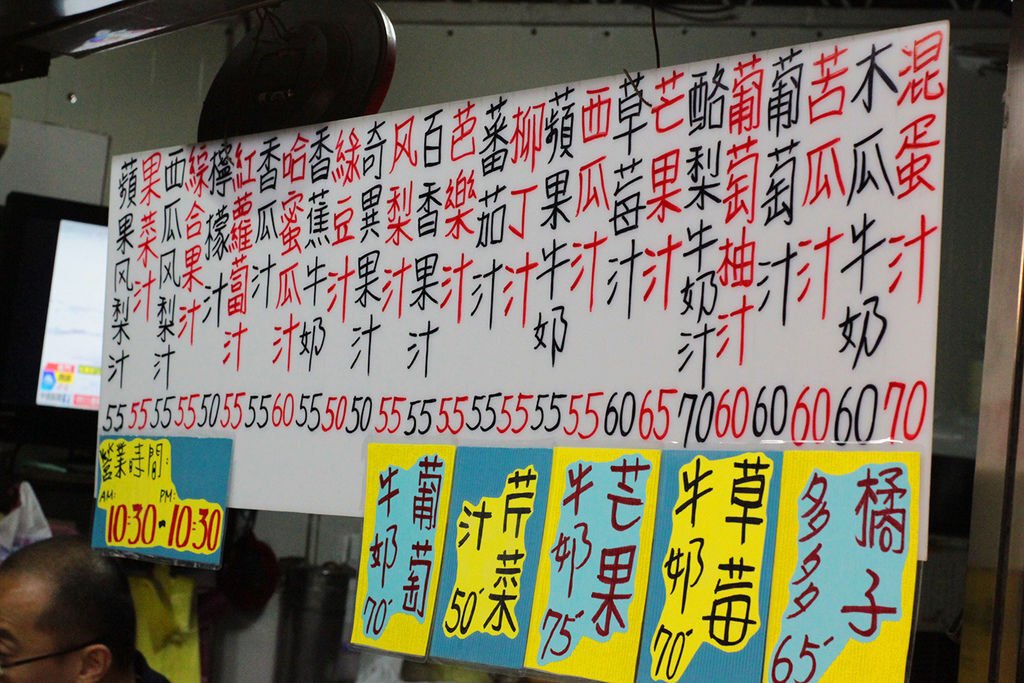 混蛋汁 70
木瓜牛奶 60
苦瓜汁 60
葡萄汁 60
葡萄柚汁 60
酪梨牛奶汁 70
芒果汁 65
草莓汁 60
西瓜汁 55
蘋果牛奶 55
柳丁汁 55
蕃茄汁 55
芭樂汁 55
百香果汁 55
风梨汁 55
奇異果汁 50
綠豆汁 50
香蕉牛奶 55
哈蜜瓜汁 60
香瓜汁 55
紅蘿蔔汁 55
檸檬汁 50
綜合果汁 55
西瓜风梨汁 55
果菜汁 55
蘋果风梨汁 55
橘子
多多 65
草莓
牛奶 70
芒果
牛奶 75
芹菜
汁 50
葡萄
牛奶 70
營業時間:
AM: PM:
10:30~10:30